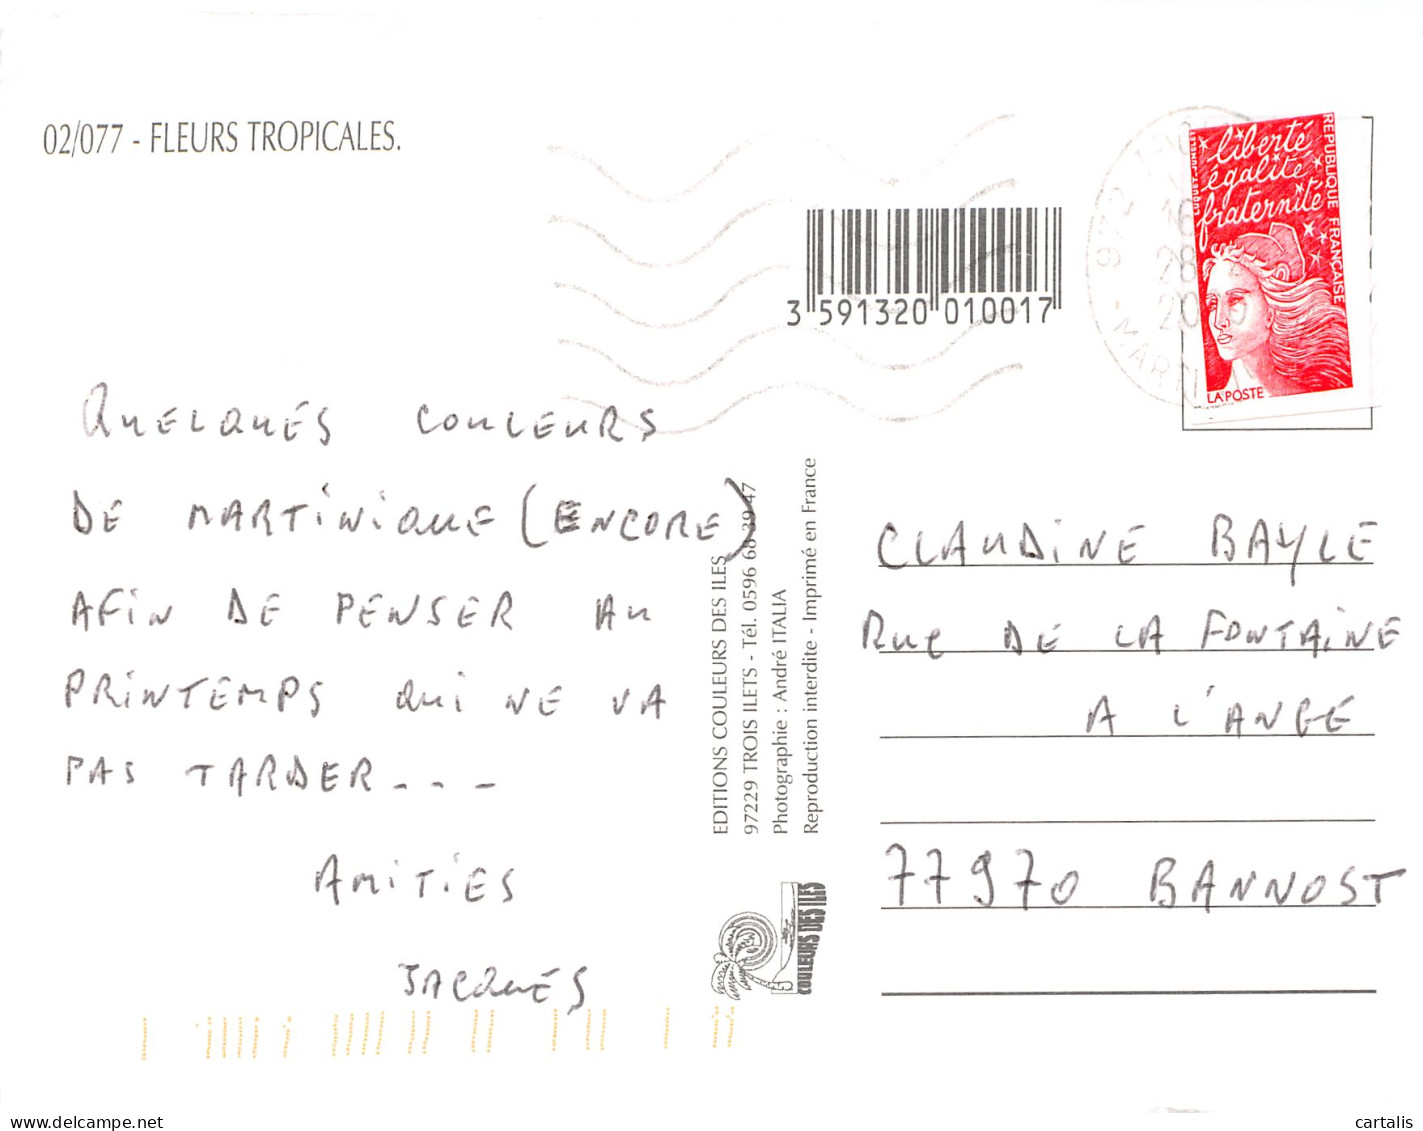 02/077 - FLEURS TROPICALES.
liberté
égalité
fraternité
REPUBLIQUE FRANÇAISE
LUQUET-JUMELET
LA POSTE
972
MARTI
16
28
20
3 591320 010017
QUELQUES COULEURS
DE MARTINIQUE (ENCORE)
AFIN DE PENSER AU
PRINTEMPS QUI NE VA
PAS TARDER...
AMITIES
JACQUES
EDITIONS COULEURS DES ILES
97229 TROIS ILETS - Tél. 0596 68 39 47
Photographie : André ITALIA
Reproduction interdite - Imprimé en France
COULEURS DES ILES
CLAUDINE BAYLE
RUE DE LA FONTAINE
A L'ANGE
77970 BANNOST
delcampe.net
cartalis